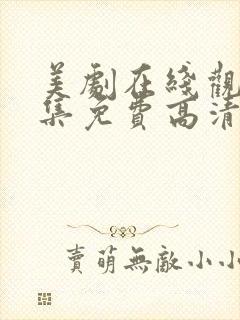 美劇在綫觀
集免費高清
賣萌無敵小小